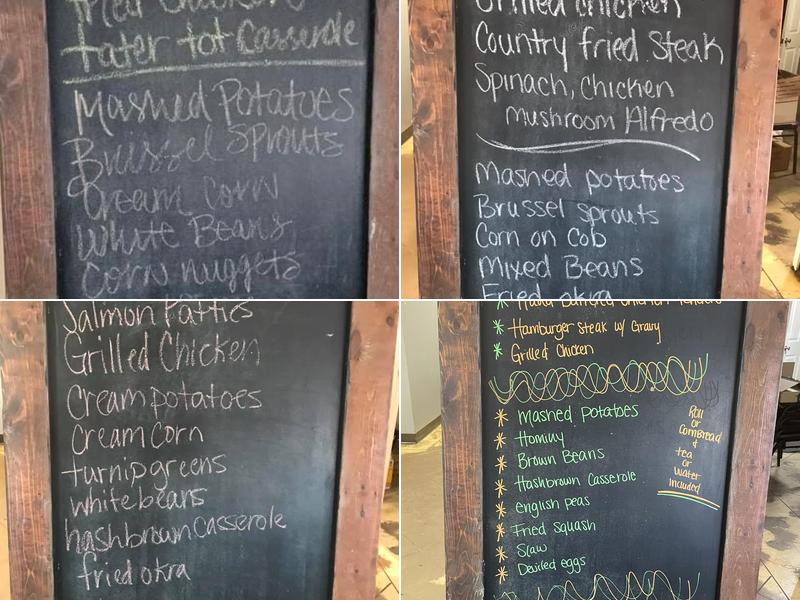 Fried Chicken
tater tot Casserole
Mashed Potatoes
Brussel Sprouts
Cream Corn
White Beans
Corn nuggets
Grilled Chicken
Country fried Steak
Spinach, Chicken
mushroom Alfredo
Mashed potatoes
Brussel sprouts
Corn on Cob
Mixed Beans
Fried okra
Salmon Patties
Grilled Chicken
Cream potatoes
Cream Corn
turnip greens
white beans
hashbrown Casserole
fried okra
Hand Battered Chicken Tenders
* Hamburger Steak w/ Gravy
* Grilled Chicken
* Mashed Potatoes
* Hominy
* Brown Beans
* Hashbrown Casserole
* english peas
* Fried Squash
* Slaw
* Deviled eggs
Roll
or
Cornbread
&
tea
or
Water
Included